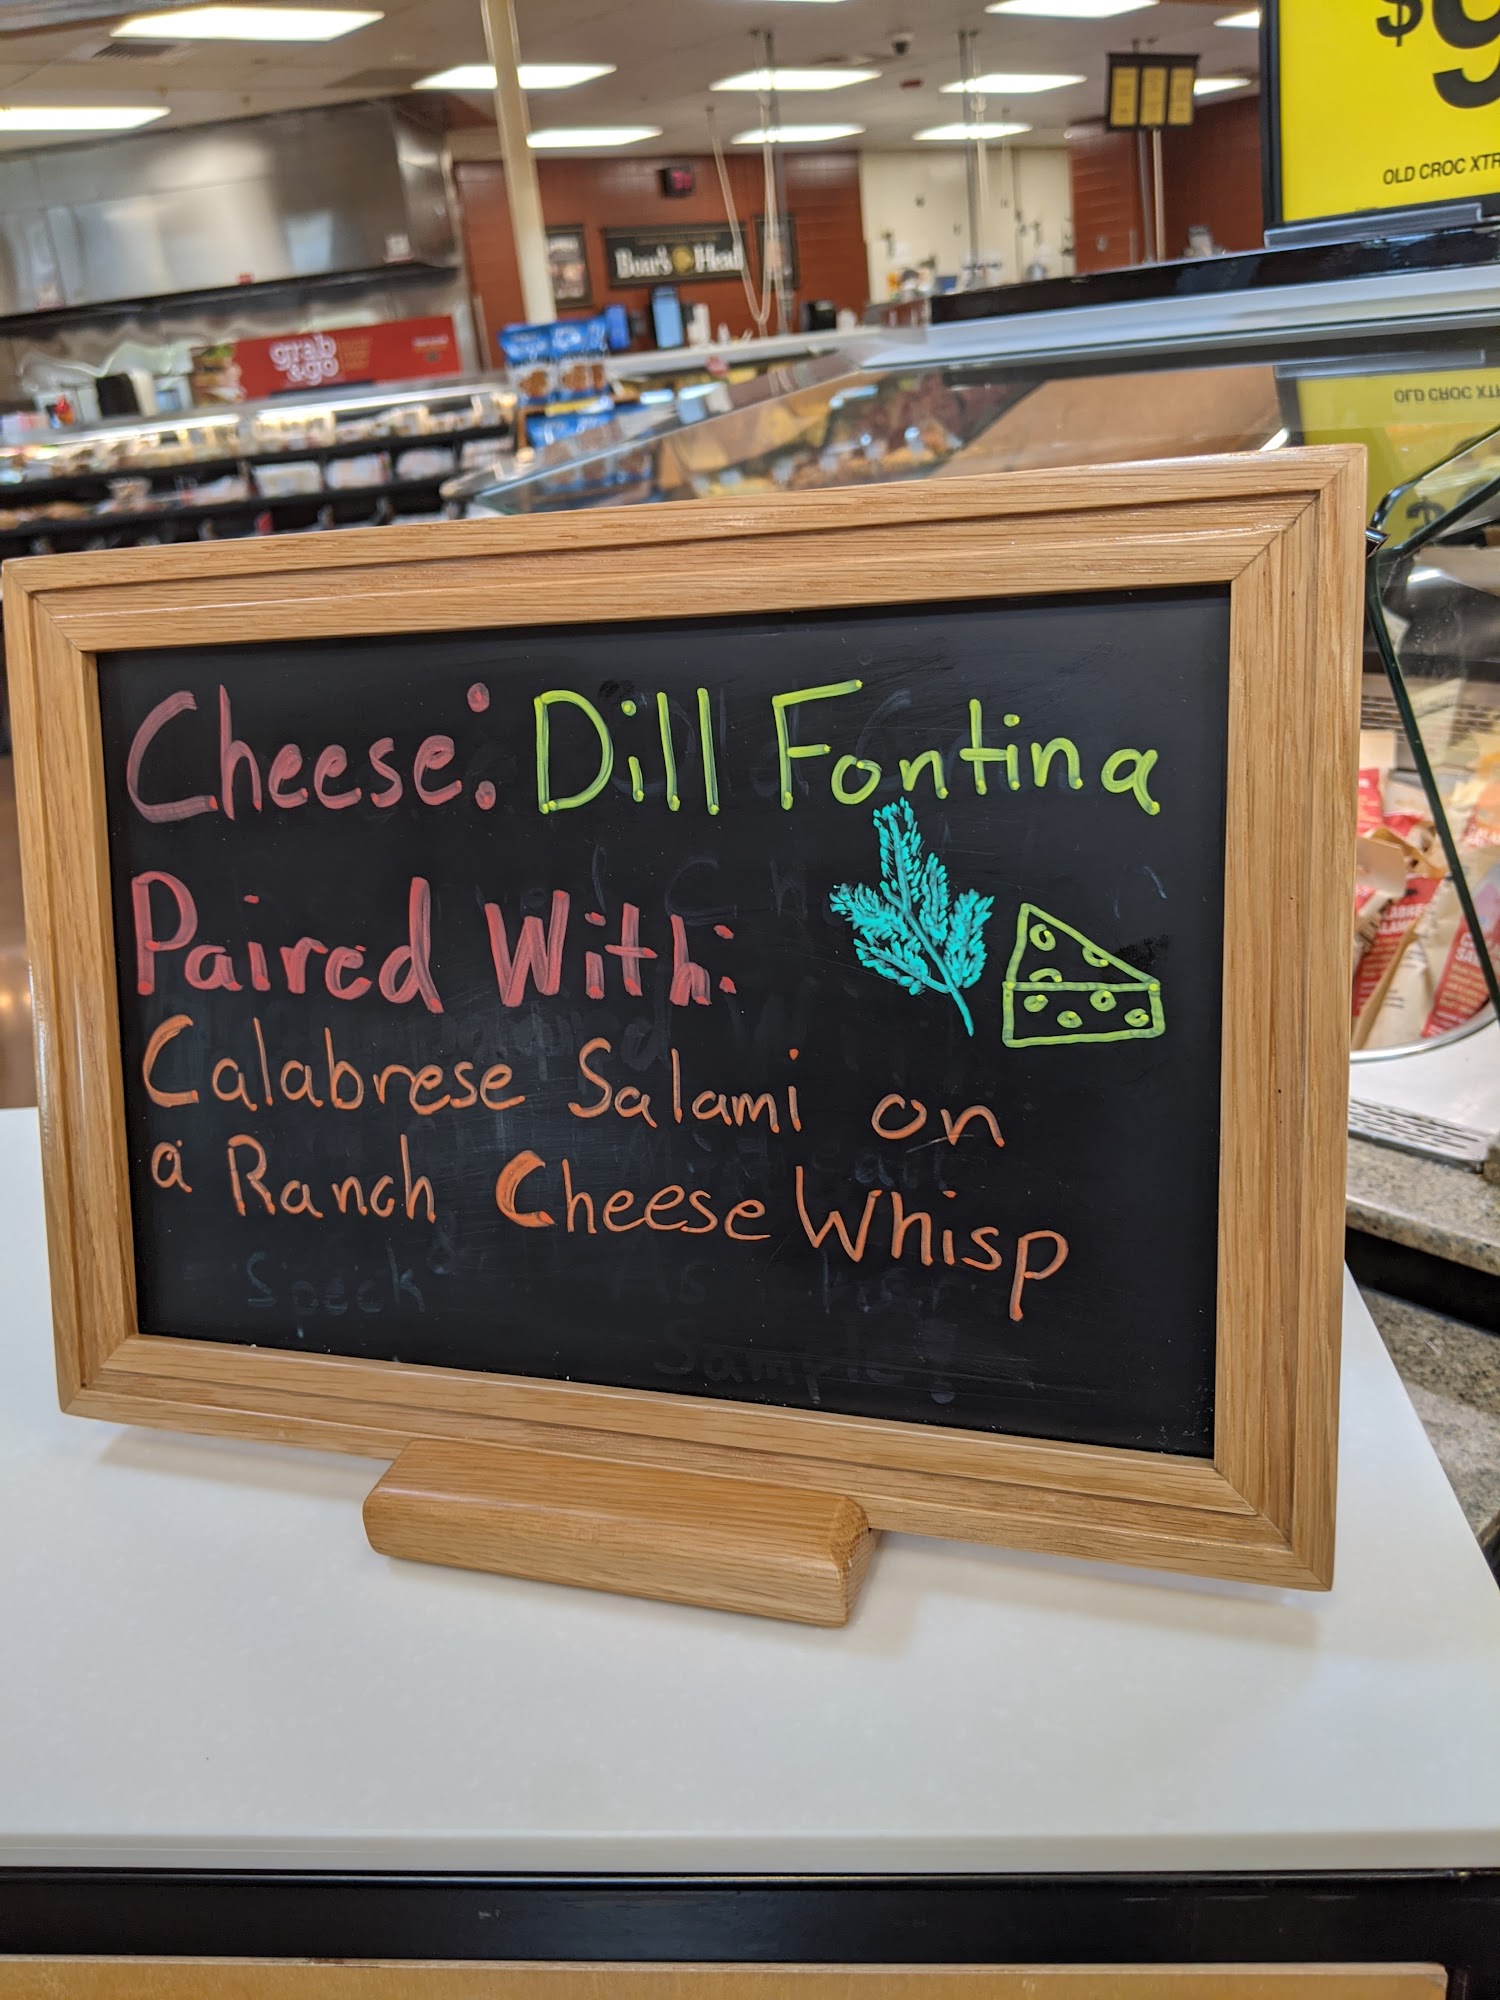 $9
OLD CROC XTR
Boar's Head
grab
&go
Cheese: Dill Fontina
Paired With:
Calabrese Salami on
a Ranch Cheese Whisp
Speck
Sample!